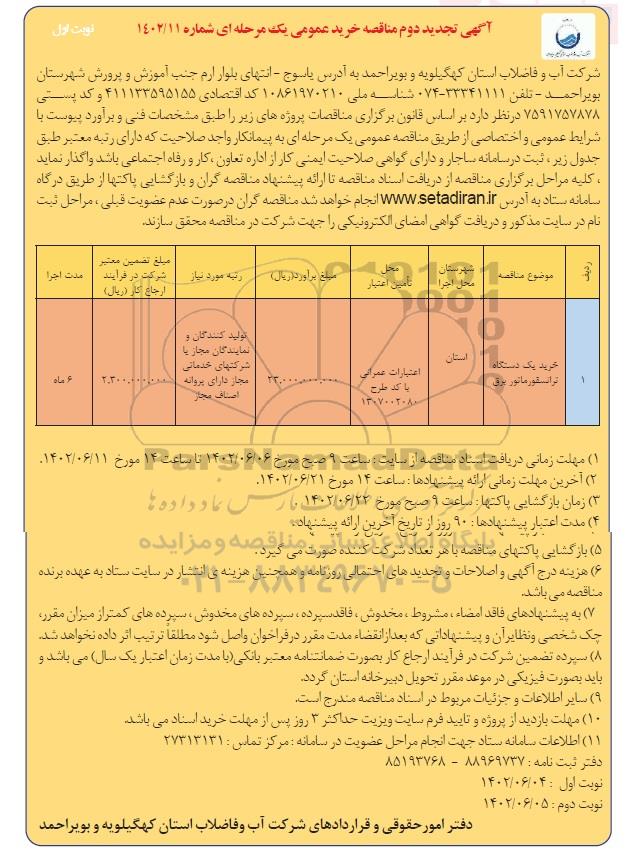 آگهی تجدید دوم مناقصه خرید عمومی یک مرحله ای شماره ۱۴۰۲/۱۱
نوبت اول
شرکت آب و فاضلاب استان کهگیلویه و بویراحمد به آدرس یاسوج - انتهای بلوار ارم جنب آموزش و پرورش شهرستان
بویراحمـد - تلفن ۳۳۳۴۱۱۱۱-۰۷۴ شناسـه ملی ۱۰۸۶۱۹۷۰۲۱۰ کد اقتصادی ۴۱۱۱۳۳۵۹۵۱۵۵ و کد پسـتی
۷۵۹۱۷۵۷۸۷۸ درنظر دارد بر اساس قانون برگزاری مناقصات پروژه های زیر را طبق مشخصات فنی و برآورد پیوست با
شرایط عمومی و اختصاصی از طریق مناقصه عمومی یک مرحله ای به پیمانکار واجد صلاحیت که دارای رتبه معتبر طبق
جدول زیر ، ثبت درسامانه ساجار و دارای گواهی صلاحیت ایمنی کار از اداره تعاون ،کار و رفاه اجتماعی باشد واگذار نماید
، کلیه مراحل برگزاری مناقصه از دریافت اسناد مناقصه تا ارائه پیشنهاد مناقصه گران و بازگشایی پاکتها از طریق درگاه
سامانه ستاد به آدرس www.setadiran.ir انجام خواهد شد مناقصه گران درصورت عدم عضویت قبلی ، مراحل ثبت
نام در سایت مذکور و دریافت گواهی امضای الکترونیکی را جهت شرکت در مناقصه محقق سازند.
ردیف
موضوع مناقصه
شهرستان
محل اجرا
محل
تأمین اعتبار
مبلغ برآورد(ریال)
رتبه مورد نیاز
مبلغ تضمین معتبر
شرکت در فرآیند
ارجاع کار (ریال)
مدت اجرا
۱
خرید یک دستگاه
ترانسفورماتور برق
استان
اعتبارات عمرانی
با کد طرح
۱۳۰۷۰۰۲۰۸۰
۲۳,۰۰۰,۰۰۰,۰۰۰
تولید کنندگان و
نمایندگان مجاز یا
شرکتهای خدماتی
مجاز دارای پروانه
اصناف مجاز
۲,۳۰۰,۰۰۰,۰۰۰
۶ ماه
۱) مهلت زمانی دریافت اسناد مناقصه از سایت : ساعت ۹ صبح مورخ ۱۴۰۲/۰۶/۰۶ تا ساعت ۱۴ مورخ ۱۴۰۲/۰۶/۱۱.
۲) آخرین مهلت زمانی ارائه پیشنهادها : ساعت ۱۴ مورخ ۱۴۰۲/۰۶/۲۱.
۳) زمان بازگشایی پاکتها : ساعت ۹ صبح مورخ ۱۴۰۲/۰۶/۲۲ .
۴) مدت اعتبار پیشنهادها : ۹۰ روز از تاریخ آخرین ارائه پیشنهاد.
۵) بازگشایی پاکتهای مناقصه با هر تعداد شرکت کننده صورت می گیرد .
۶) هزینه درج آگهی و اصلاحات و تجدید های احتمالی روزنامه و همچنین هزینه ی انتشار در سایت ستاد به عهده برنده
مناقصه می باشد.
۷) به پیشنهادهای فاقد امضاء ، مشروط ، مخدوش ، فاقدسپرده ، سپرده های مخدوش ، سپرده های کمتراز میزان مقرر،
چک شخصی ونظایرآن و پیشنهاداتی که بعدازانقضاء مدت مقرر درفراخوان واصل شود مطلقاً ترتیب اثر داده نخواهد شد.
۸) سپرده تضمین شرکت در فرآیند ارجاع کار بصورت ضمانتنامه معتبر بانکی(با مدت زمان اعتبار یک سال) می باشد و
باید بصورت فیزیکی در موعد مقرر تحویل دبیرخانه استان گردد.
۹) سایر اطلاعات و جزئیات مربوط در اسناد مناقصه مندرج است.
۱۰) مهلت بازدید از پروژه و تایید فرم سایت ویزیت حداکثر ۳ روز پس از مهلت خرید اسناد می باشد.
۱۱) اطلاعات سامانه ستاد جهت انجام مراحل عضویت در سامانه : مرکز تماس : ۲۷۳۱۳۱۳۱
دفتر ثبت نامه : ۸۸۹۶۹۷۳۷ - ۸۵۱۹۳۷۶۸
نوبت اول : ۱۴۰۲/۰۶/۰۴
نوبت دوم : ۱۴۰۲/۰۶/۰۵
دفتر امورحقوقی و قراردادهای شرکت آب وفاضلاب استان کهگیلویه و بویراحمد
ParsNamadData
پایگاه اطلاع رسانی مناقصه و مزایده
۰۲۱-۸۸۳۴۹۶۷۰-۵